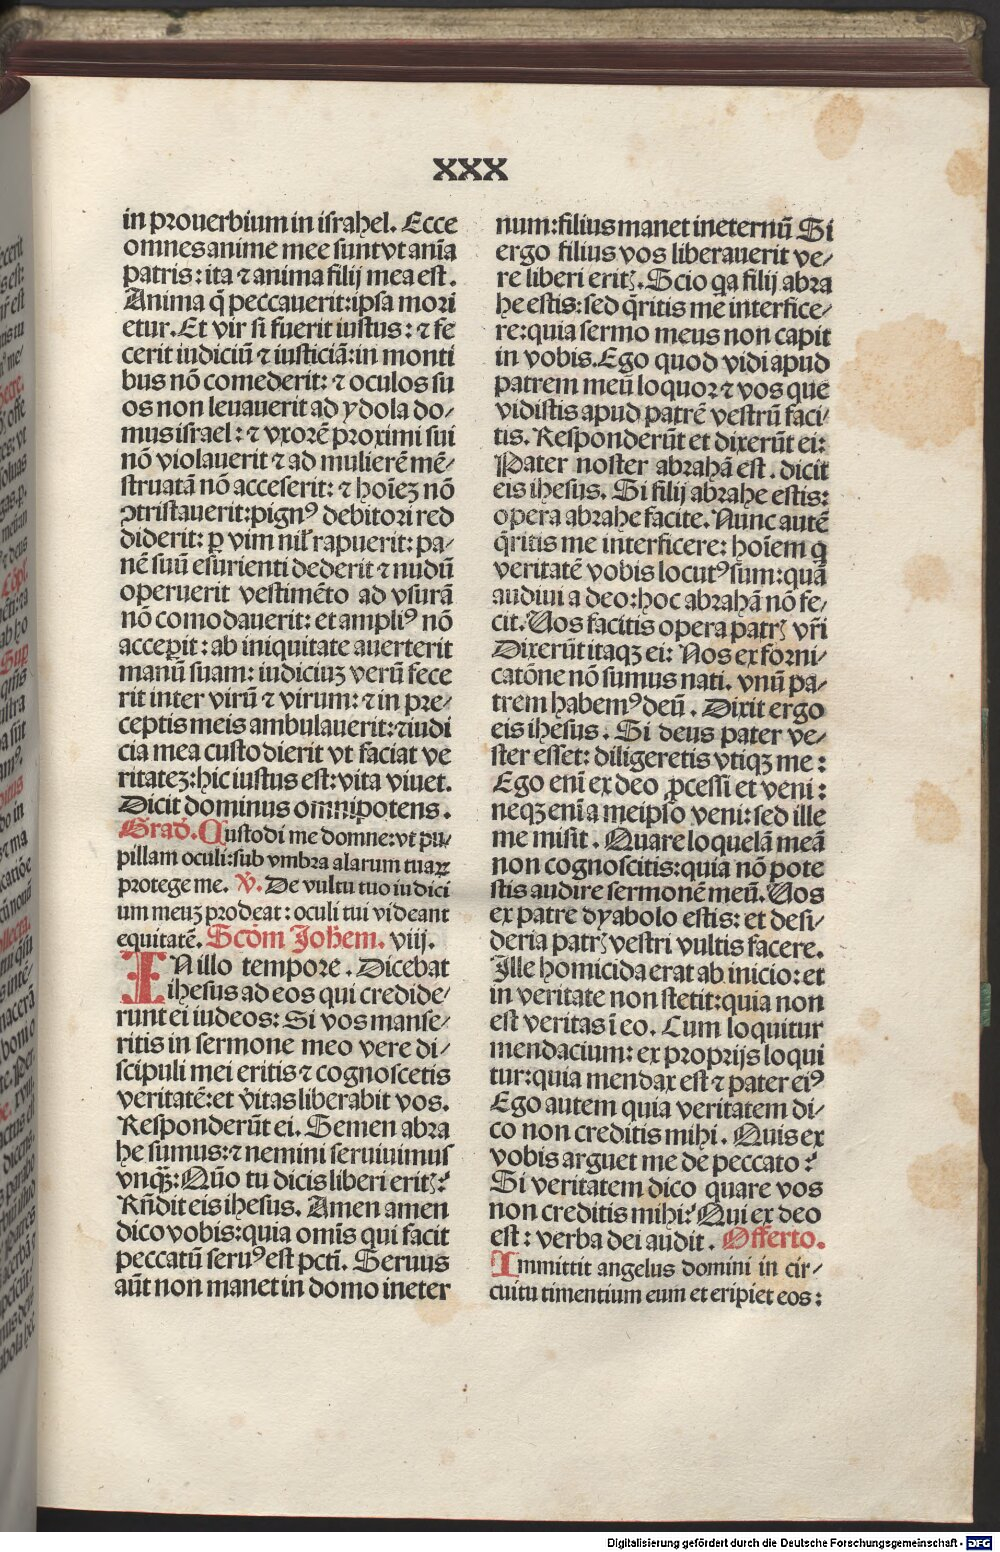 XXX
in prouerbium in israhel. Ecce
omnes anime mee sunt vt aīa
patris: ita ⁊ anima filij mea est.
Anima q̄ peccauerit: ipsa mori
etur. Et vir si fuerit iustus: ⁊ fe
cerit iudiciū ⁊ iusticiā: in monti
bus nō comederit: ⁊ oculos su
os non leuauerit ad ydola do⸗
mus israel: ⁊ vxorē proximi sui
nō violauerit ⁊ ad mulierē mē⸗
struatā nō accesserit: ⁊ hoīeꝫ nō
ꝯtristauerit: pignꝰ debitori red
diderit: ꝑ vim nil rapuerit: pa⸗
nē suū esurienti dederit ⁊ nudū
operuerit vestimēto ad vsurā
nō comodauerit: et ampliꝰ nō
accepit: ab iniquitate auerterit
manū suam: iudiciuꝫ verū fece
rit inter virū ⁊ virum: ⁊ in pre⸗
ceptis meis ambulauerit: ⁊ iudi
cia mea custodierit vt faciat ve
ritateꝫ: hic iustus est: vita viuet.
Dicit dominus omnipotens.
Grad. Custodi me domne: vt pu⸗
pillam oculi: sub vmbra alarum tuaꝝ
protege me. V̄. De vultu tuo iudici
um meuꝫ prodeat: oculi tui videant
equitatē. Scdm Johēm. viij.
IN illo tempore. Dicebat
ihesus ad eos qui credide⸗
runt ei iudeos: Si vos manse⸗
ritis in sermone meo vere di⸗
scipuli mei eritis ⁊ cognoscetis
veritatē: et v̄itas liberabit vos.
Responderūt ei. Semen abra
he sumus: ⁊ nemini seruiuimus
vnqꝫ: Quō tu dicis liberi eritꝭ?
Rn̄dit eis ihesus. Amen amen
dico vobis: quia omīs qui facit
peccatū seruꝰ est pcti. Seruus
aūt non manet in domo ineter
num: filius manet in eternū Si
ergo filius vos liberauerit ve⸗
re liberi eritꝭ. Scio qa filij abra
he estis: sed q̄ritis me interfice⸗
re: quia sermo meus non capit
in vobis. Ego quod vidi apud
patrem meū loquor ⁊ vos que
vidistis apud patrē vestrū faci⸗
tis. Responderūt et dixerūt ei:
Pater noster abrahā est. dicit
eis ihesus. Si filij abrahe estis:
opera abrahe facite. Nunc autē
q̄ritis me interficere: hoīem q
veritatē vobis locutꝰ sum: quā
audiui a deo: hoc abrahā nō fe⸗
cit. Vos facitis opera patrꝭ vr̄i
Dixerūt itaqꝫ ei: Nos ex forni⸗
catōne nō sumus nati. vnū pa⸗
trem habemꝰ deū. Dixit ergo
eis ihesus. Si deus pater ve⸗
ster esset: diligeretis vtiqꝫ me:
Ego enī ex deo ꝓcessi et veni:
neqꝫ enī a meipso veni: sed ille
me misit. Quare loquelā meā
non cognoscitis: quia nō pote
stis audire sermonē meū. Vos
ex patre dyabolo estis: et desi⸗
deria patrꝭ vestri vultis facere.
Ille homicida erat ab inicio: et
in veritate non stetit: quia non
est veritas ī eo. Cum loquitur
mendacium: ex proprijs loqui
tur: quia mendax est ⁊ pater eiꝰ
Ego autem quia veritatem di⸗
co non creditis mihi. Quis ex
vobis arguet me de peccato?
Si veritatem dico quare vos
non creditis mihi? Qui ex deo
est: verba dei audit. Offerto.
Immittit angelus domini in cir⸗
cuitu timentium eum et eripiet eos:
Digitalisierung gefördert durch die Deutsche Forschungsgemeinschaft - DFG